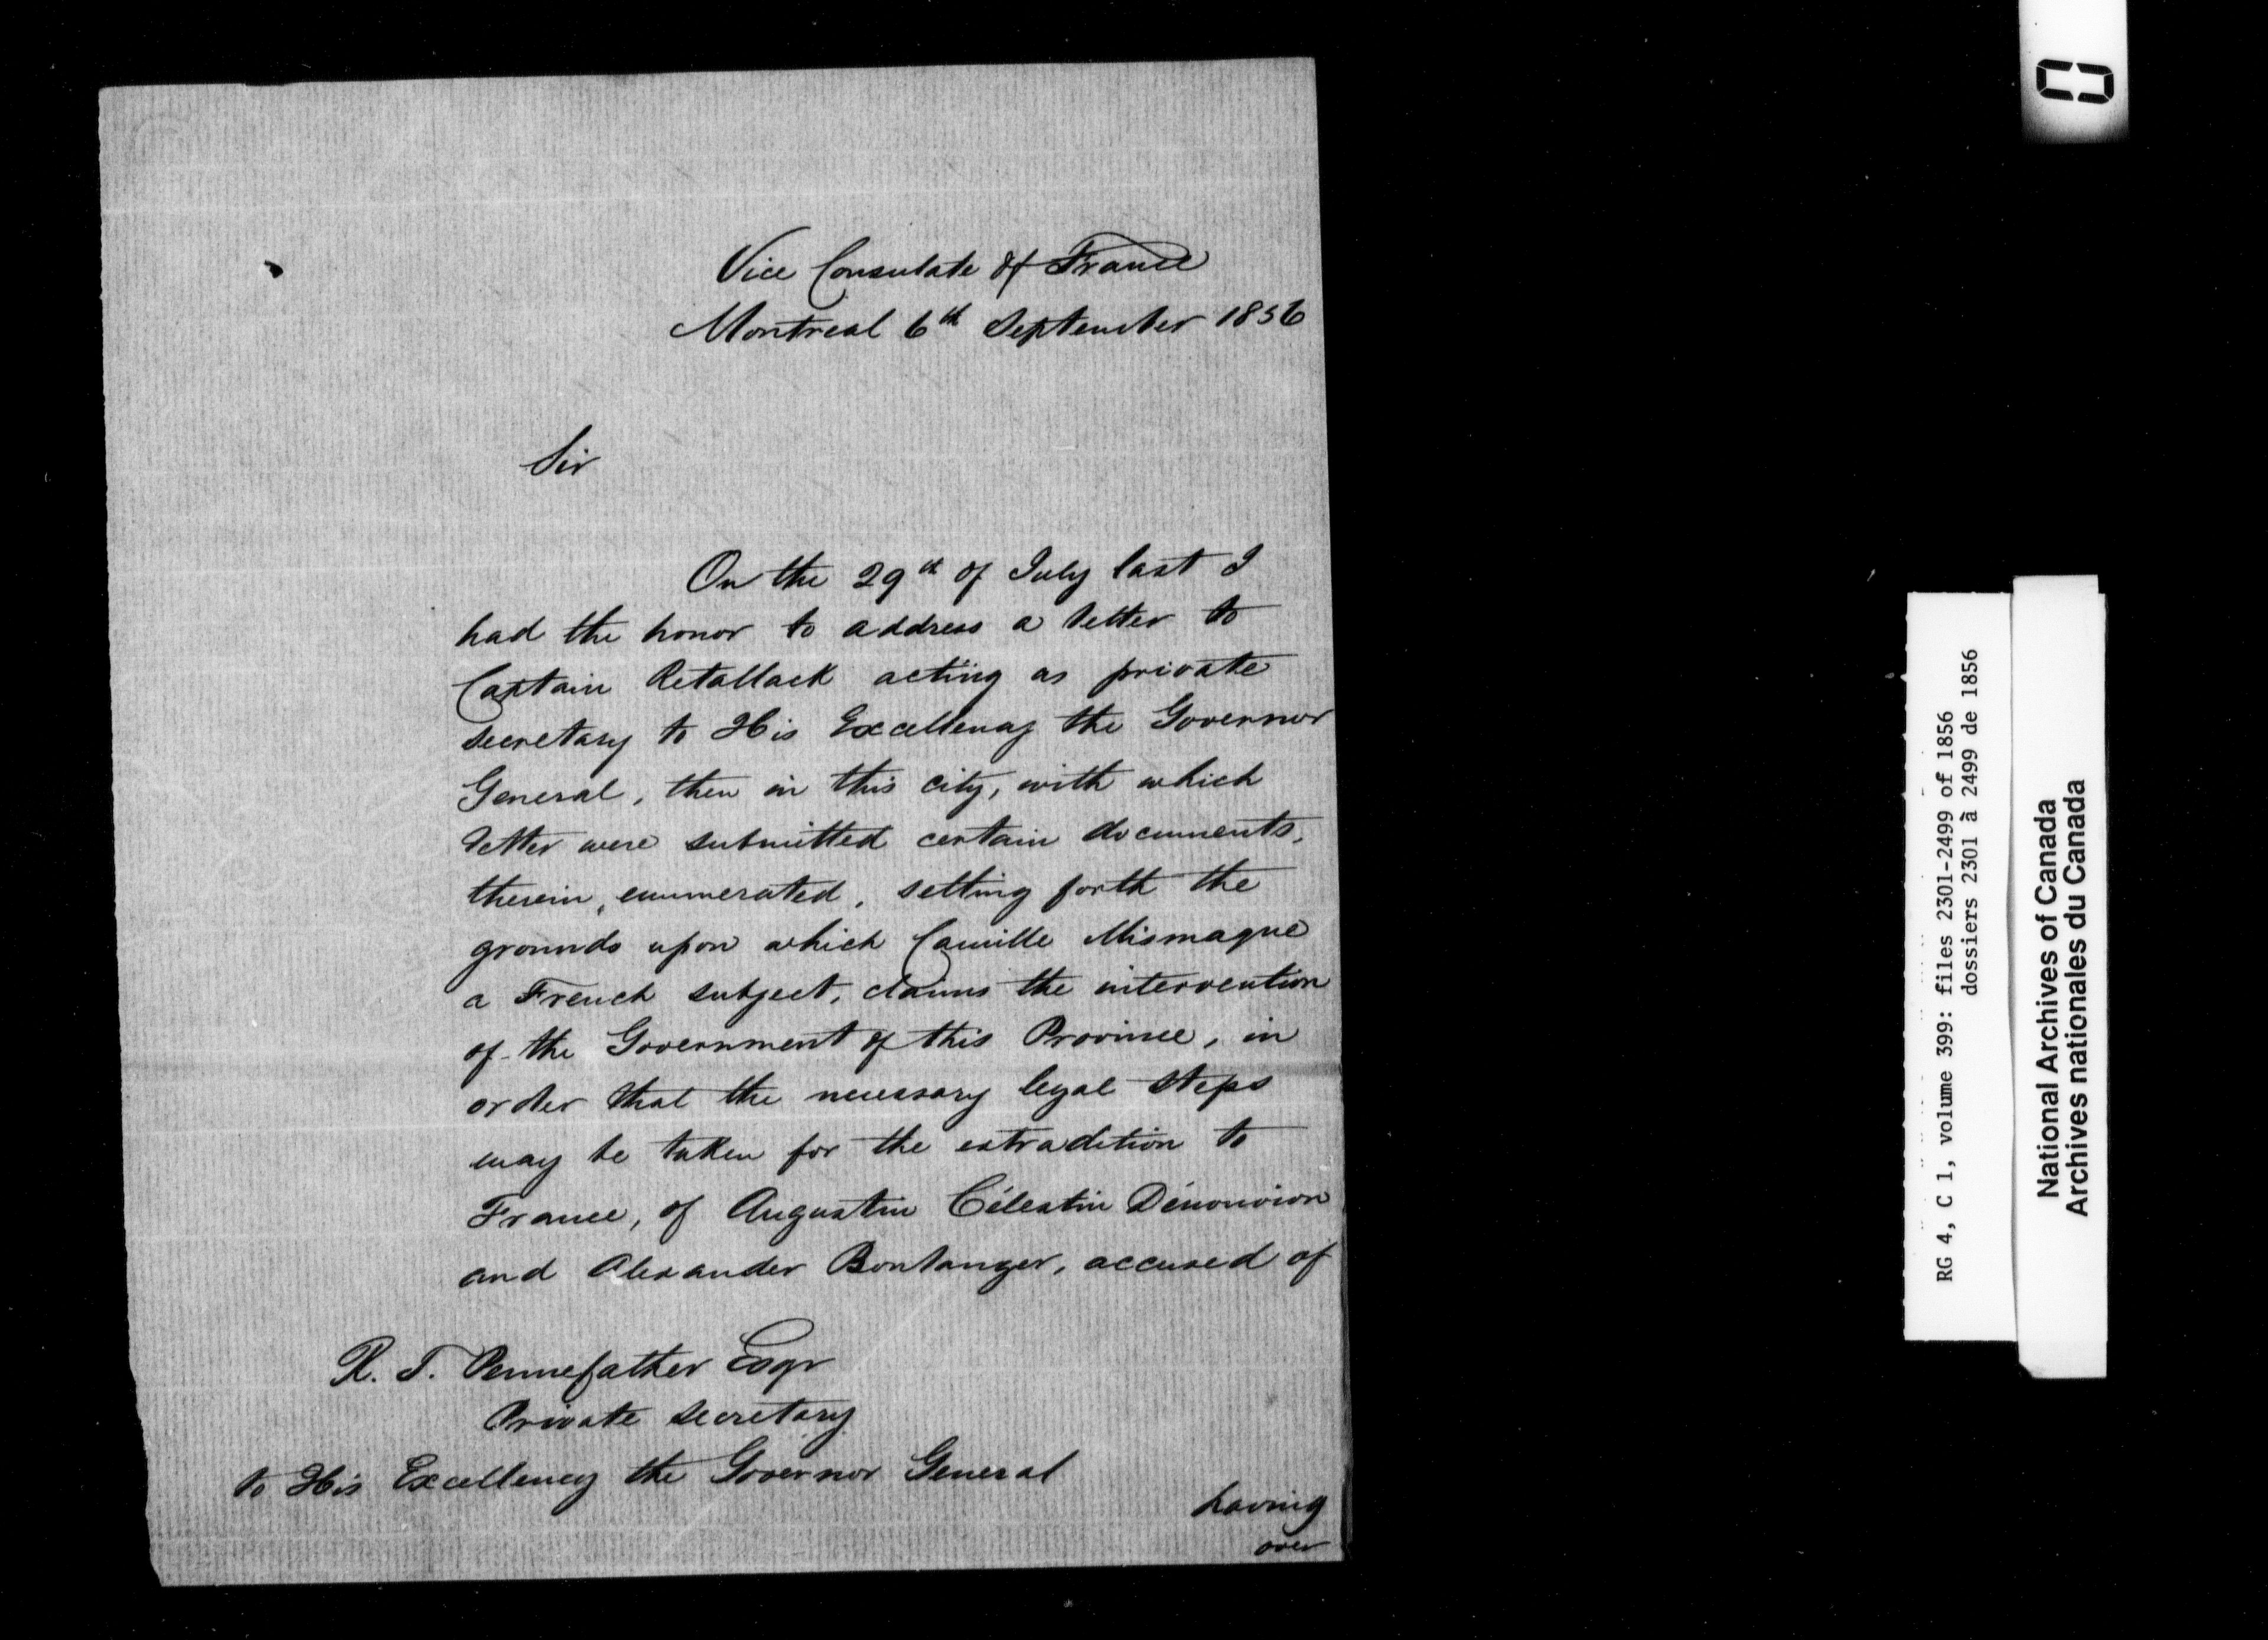 Vice Consulate of France
Montreal 6th September 1856
Sir
On the 29th of July last I
had the honor to address a letter to
Captain Retallack acting as private
secretary to His Excellency the Governor
General, then in this city, with which
letter were submitted certain documents,
therein, enumerated, setting forth the
grounds upon which Camille Mismaque
a French subject, claims the intervention
of the Government of this Province, in
order that the necessary legal steps
may be taken for the extradition to
France, of Augustin Célestin
and Alexander Boulanger, accused of
R. T. Pennefather Esqr
Private Secretary
to His Excellency the Governor General
having
over
RG 4, C 1, volume 399: files 2301-2499 of 1856
dossiers 2301 à 2499 de 1856
National Archives of Canada
Archives nationales du Canada